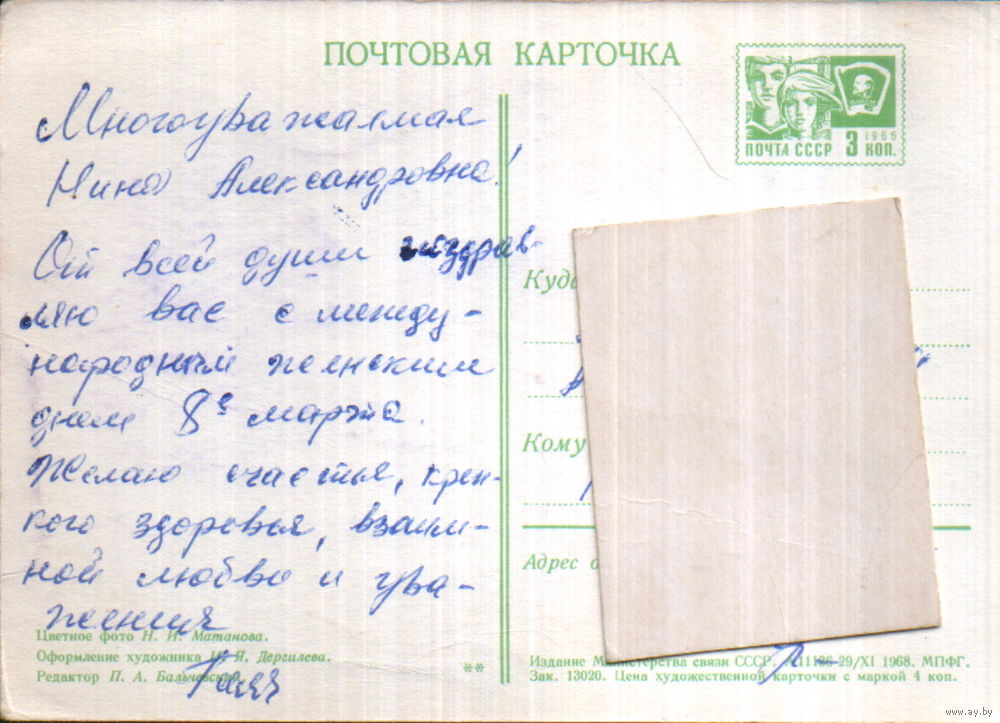 ПОЧТОВАЯ КАРТОЧКА
ПОЧТА СССР 3 КОП.
1966
Многоуважаемая
Нина Александровна!
От всей души поздрав-
ляю вас с между-
народным женским
днем 8е марта.
Желаю счастья, креп-
кого здоровья, взаим-
ной любви и ува-
жения
Галя
Цветное фото Н. И. Матанова.
Оформление художника И. Я. Дергилева.
Редактор П. А. Бальчевский.
**
Куда
Кому
Адрес
Издание Министерства связи СССР. 29/XI 1968. МПФГ.
Зак. 13020. Цена художественной карточки с маркой 4 коп.
www.ay.by